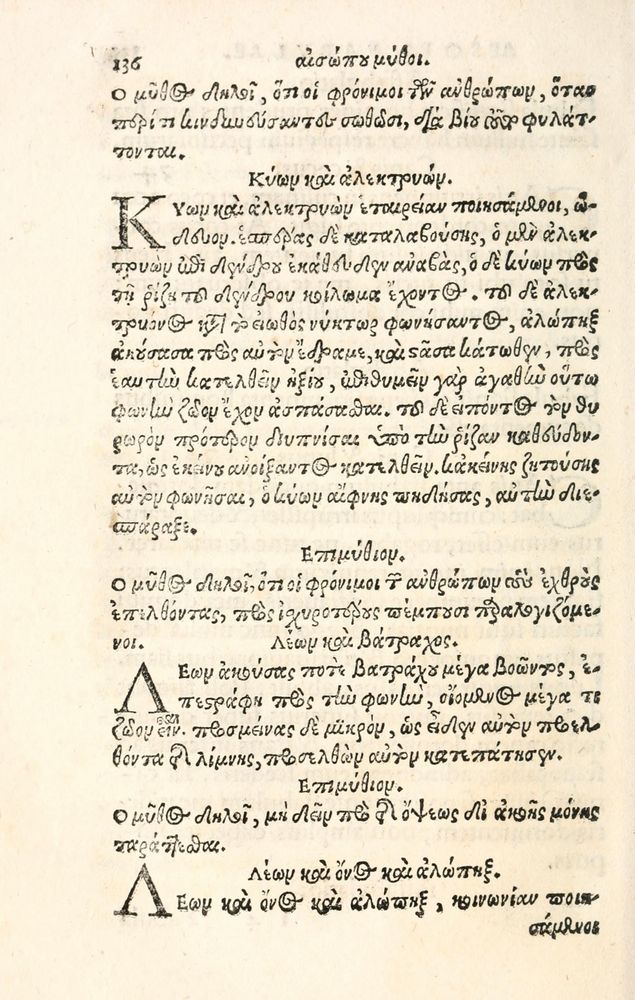 136 αἰσώπου μύθοι.
Ο μῦθος δηλοῖ, ὅτι οἱ φρόνιμοι τῶν ἀνθρώπων, ὅταν
περί τι κινδυνεύσαντες σωθῶσι, διὰ βίου αὐτὸ φυλάτ-
τονται.
Κύων καὶ ἀλεκτρυών.
ΚΥων καὶ ἀλεκτρυὼν ἑταιρείαν ποιησάμενοι, ὥ-
δευον. ἑσπέρας δὲ καταλαβούσης, ὁ μὲν ἀλεκ-
τρυὼν ἐπὶ δένδρου ἐκάθευδεν ἀναβὰς, ὁ δὲ κύων πρὸς
τῇ ῥίζῃ τοῦ δένδρου κοίλωμα ἔχοντος. τοῦ δὲ ἀλεκ-
τρυόνος κατὰ τὸ εἰωθὸς νύκτωρ φωνήσαντος, ἀλώπηξ
ἀκούσασα πρὸς αὐτὸν ἔδραμε, καὶ στᾶσα κάτωθεν, πρὸς
ἑαυτὴν κατελθεῖν ἠξίου, ἐπιθυμεῖν γὰρ ἀγαθὴν οὕτω
φωνὴν ζῶον ἔχον ἀσπάσασθαι. τοῦ δὲ εἰπόντος τὸν θυ
ρωρὸν πρότερον διυπνίσαι ὑπὸ τὴν ῥίζαν καθεύδον-
τα, ὡς ἐκείνου ἀνοίξαντος κατελθεῖν. κἀκείνης ζητούσης
αὐτὸν φωνῆσαι, ὁ κύων αἴφνης πηδήσας, αὐτὴν διε-
σπάραξε.
Επιμύθιον.
Ο μῦθος δηλοῖ, ὅτι οἱ φρόνιμοι τῶν ἀνθρώπων τοὺς ἐχθροὺς
ἐπελθόντας, πρὸς ἰσχυροτέρους πέμπουσι παραλογιζόμε-
νοι. Λέων καὶ Βάτραχος.
ΛΕων ἀκούσας ποτὲ βατράχου μέγα βοῶντος, ἐ-
πεστράφη πρὸς τὴν φωνὴν, οἰόμενος μέγα τι
ζῶον εἶναι. προσμείνας δὲ μικρὸν, ὡς εἶδεν αὐτὸν προελ-
θόντα τῆς λίμνης, προσελθὼν αὐτὸν κατεπάτησεν.
Επιμύθιον.
Ο μῦθος δηλοῖ, μὴ δεῖν πρὸ τῆς ὄψεως δι ἀκοῆς μόνης
ταράττεσθαι.
Λέων καὶ ὄνος καὶ ἀλώπηξ.
ΛΕων καὶ ὄνος καὶ ἀλώπηξ, κοινωνίαν ποιη-
σάμενοι